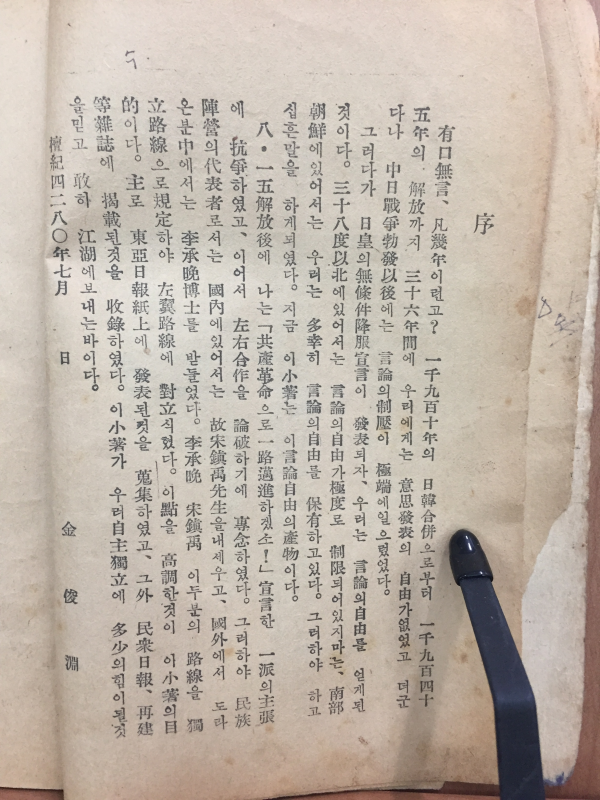 序
有口無言、凡幾年이런고? 一千九百十年의 日韓合併으로부터 一千九百四十
五年의 解放까지 三十六年間에 우리에게는 意思發表의 自由가없었고 더군
다나 中日戰爭勃發以後에는 言論의制壓이 極端에일으렀었다。
그러다가 日皇의無條件降服宣言이 發表되자、우리는 言論의自由를 얻게된
것이다。三十八度以北에있어서는 言論의自由가極度로 制限되어있지마는、南部
朝鮮에있어서는 우리는 多幸히 言論의自由를 保有하고있다。그러하야 하고
십흔말을 하게되였다。지금 이小著는 이言論自由의產物이다。
八・一五解放後에 나는「共產革命으로一路邁進하겠소!」宣言한 一派의主張
에 抗爭하였고、이어서 左右合作을 論破하기에 專念하였다。그러하야 民族
陣營의代表者로서는 國內에있어서는 故宋鎭禹先生을내세우고、國外에서 도라
온분中에서는 李承晩博士를 받들었다。李承晩 宋鎭禹 이두분의 路線을 獨
立路線으로規定하야 左翼路線에 對立식혔다。이點을 高調한것이 이小著의目
的이다。主로 東亞日報紙上에 發表된것을 蒐集하였고、그外 民衆日報、再建
等雜誌에 揭載된것을 收錄하였다。이小著가 우리自主獨立에 多少의힘이될것
을믿고 敢히 江湖에보내는바이다。
檀紀四二八〇年七月 日
金俊淵